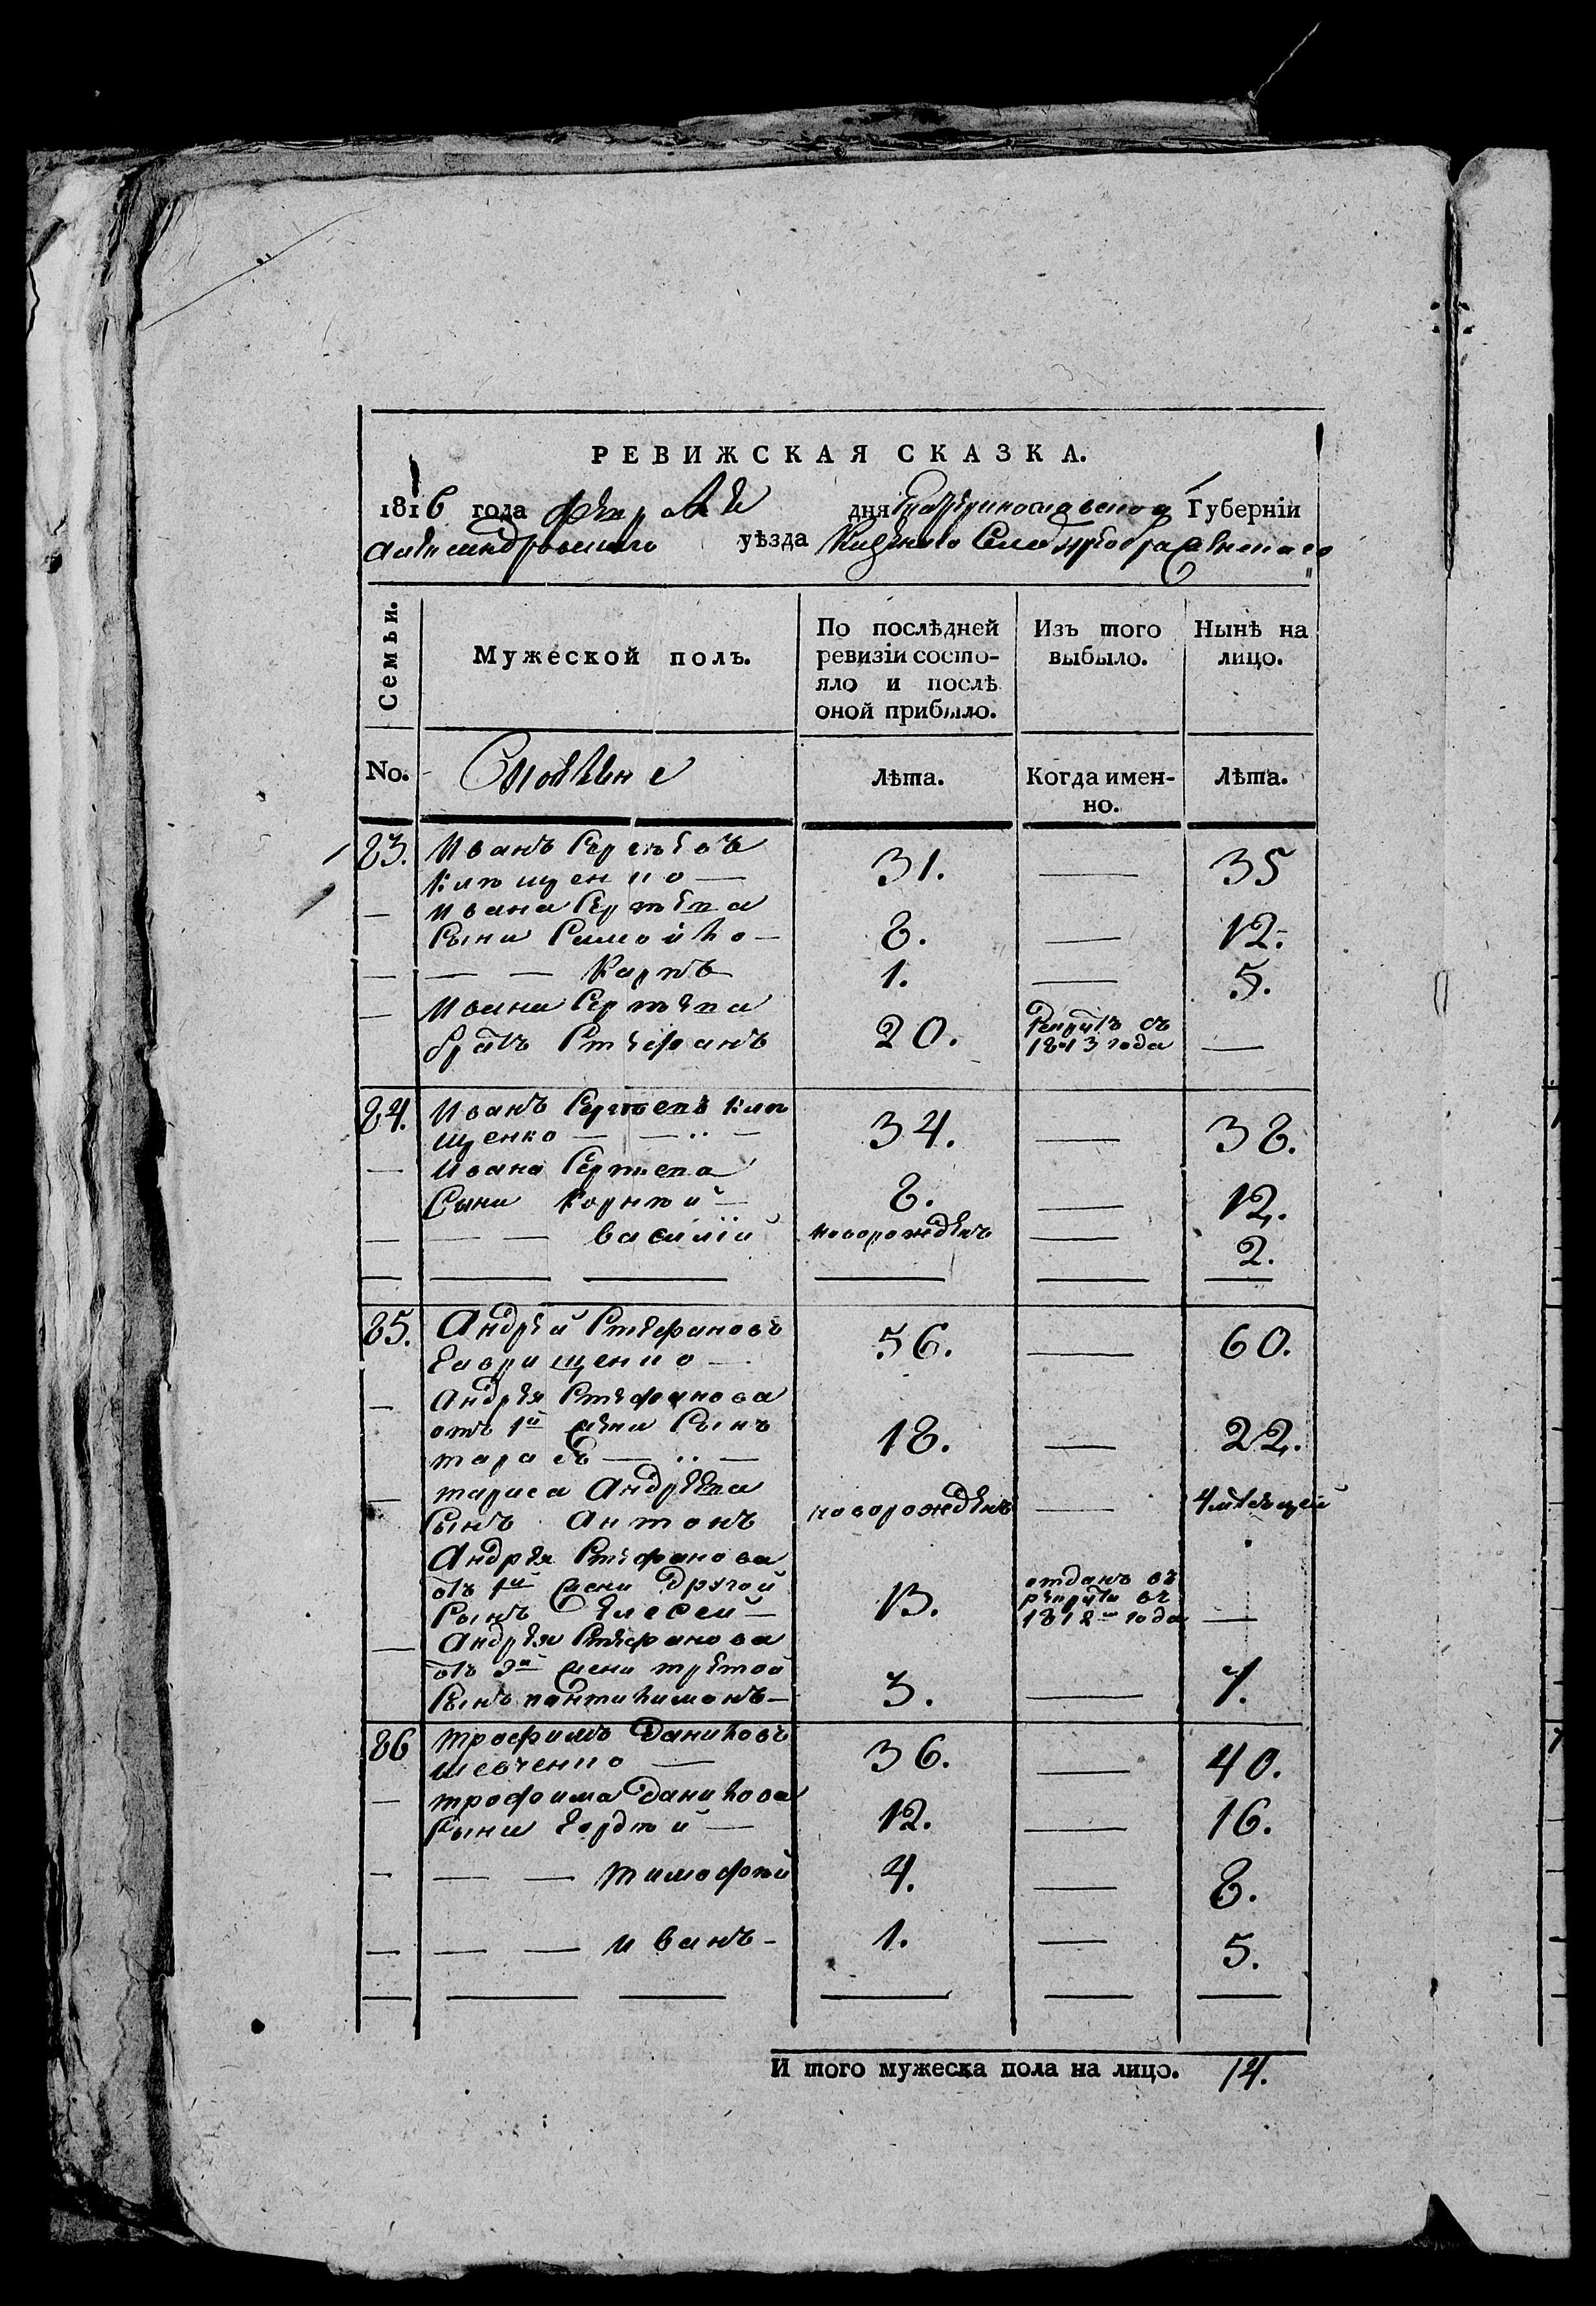 РЕВИЖСКАЯ СКАЗКА.
1816 года дня Екатеринославской Губерніи
Александровскаго уѣзда Казеннаго Села Преображенскаго
Семьи. Мужеской полъ. По послѣдней ревизіи состояло и послѣ оной прибыло. Изъ того выбыло. Нынѣ на лицо.
No. лѣта. Когда именно. лѣта.
83. Иванъ 31. — 35
—
— Ивана
Сыни Самойло — 8. — 12.
— — — Карпъ 1. — 5.
— Ивана
братъ Стефанъ 20. Рекрутъ съ 1813 года —
84. Иванъ
щенко — — 34. — 38.
— Ивана
Сыни Корнѣй — 8. — 12.
— — — василій новорожденъ — 2.
— — — — — —
85. Андрей Стефановъ
Гаврищенко — 56. — 60.
— Андрея Стефанова
отъ 1й жени Сынъ
тарасъ — — 18. — 22.
— тараса Андреева
Сынъ Антонъ новорожденъ —
Андрея Стефанова
отъ 1й жени Другой
Сынъ Елесей — 13. отданъ въ рекруты въ 1812м года —
— Андрея Стефанова
отъ 2й жени третой
Сынъ пантилимонъ — 3. — 7.
86 трофимъ Даниловъ
шевченко — 36. — 40.
— трофима Данилова
Сыни Гордѣй — 12. — 16.
— — — тимофѣй 4. — 8.
— — — иванъ — 1. — 5.
— — — — — —
И того мужеска пола на лицо. 14.